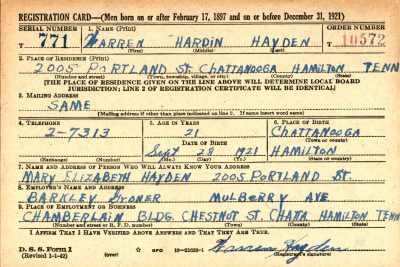 REGISTRATION CARD—(Men born on or after February 17, 1897 and on or before December 31, 1921)
SERIAL NUMBER 1. NAME (Print) ORDER NUMBER
T 771 WARREN HARDIN HAYDEN T 10572
(First) (Middle) (Last)
2. PLACE OF RESIDENCE (Print)
2005 PORTLAND ST. CHATTANOOGA HAMILTON TENN
(Number and street) (Town, township, village, or city) (County) (State)
[THE PLACE OF RESIDENCE GIVEN ON THE LINE ABOVE WILL DETERMINE LOCAL BOARD
JURISDICTION; LINE 2 OF REGISTRATION CERTIFICATE WILL BE IDENTICAL]
3. MAILING ADDRESS
SAME
[Mailing address if other than place indicated on line 2. If same insert word same]
4. TELEPHONE 5. AGE IN YEARS 6. PLACE OF BIRTH
2-7313 21 CHATTANOOGA
DATE OF BIRTH (Town or county)
Sept 28 1921 HAMILTON
(Exchange) (Number) (Mo.) (Day) (Yr.) (State or country)
7. NAME AND ADDRESS OF PERSON WHO WILL ALWAYS KNOW YOUR ADDRESS
MARY ELIZABETH HAYDEN 2005 PORTLAND ST.
8. EMPLOYER'S NAME AND ADDRESS
BARKLEY MULBERRY AVE
9. PLACE OF EMPLOYMENT OR BUSINESS
CHAMBERLAIN BLDG. CHESTNUT ST. CHATA HAMILTON TENN
(Number and street or R. F. D. number) (Town) (County) (State)
I AFFIRM THAT I HAVE VERIFIED ABOVE ANSWERS AND THAT THEY ARE TRUE.
D. S. S. Form 1
(Revised 1-1-42) (over) GPO 16—21630-1 Warren Hayden
(Registrant's signature)